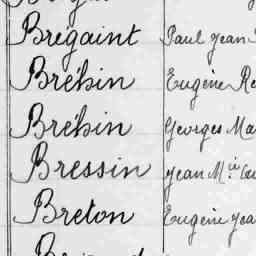 Brégaint Paul Jean
Bréhin Eugène Re
Bréhin Georges Ma
Bressin Jean M.ie
Breton Eugène Jea